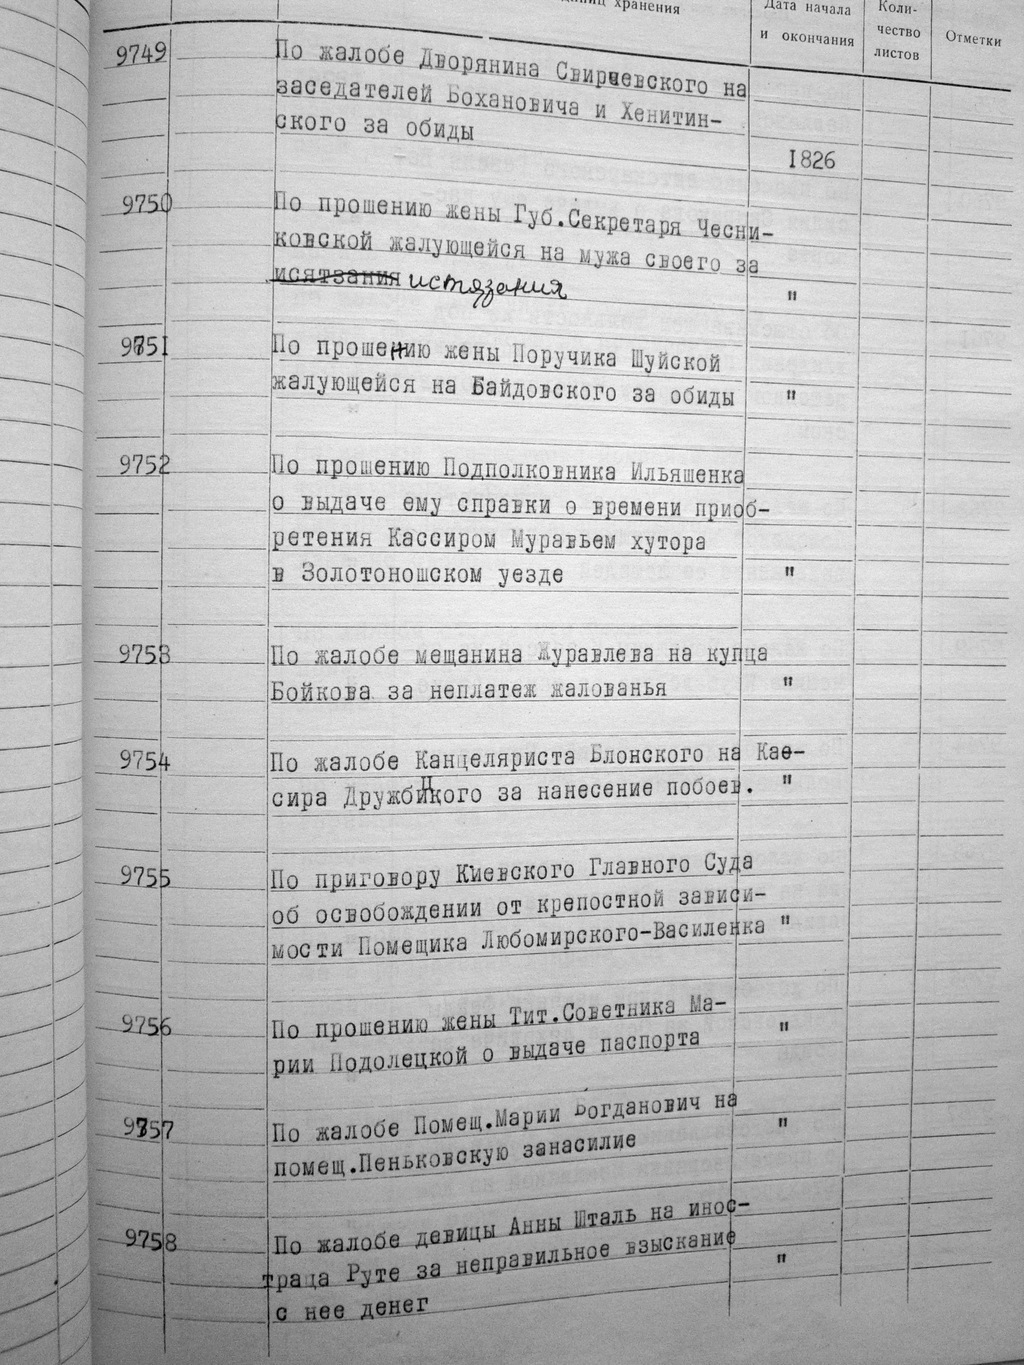 хранения
Дата начала
и окончания
Коли-
чество
листов
Отметки
9749 По жалобе Дворянина Свирчевского на
заседателей Бохановича и Хенитин-
ского за обиды
1826
9750 По прошению жены Губ.Секретаря Чесни-
ковской жалующейся на мужа своего за
исятзания истязания "
9751 По прошению жены Поручика Шуйской
жалующейся на Байдовского за обиды "
9752 По прошению Подполковника Ильяшенка
о выдаче ему справки о времени приоб-
ретения Кассиром Муравьем хутора
в Золотоношском уезде "
9753 По жалобе мещанина Журавлева на купца
Бойкова за неплатеж жалованья "
9754 По жалобе Канцеляриста Блонского на Кас-
сира Дружбицкого за нанесение побоев. "
9755 По приговору Киевского Главного Суда
об освобождении от крепостной зависи-
мости Помещика Любомирского-Василенка "
9756 По прошению жены Тит.Советника Ма-
рии Подолецкой о выдаче паспорта "
9757 По жалобе Помещ.Марии Богданович на
помещ.Пеньковскую занасилие "
9758 По жалобе девицы Анны Шталь на инос-
траца Руте за неправильное взыскание "
с нее денег